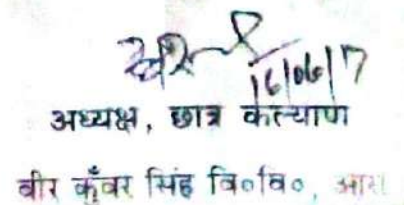 16/06/17
अध्यक्ष, छात्र कल्याण
वीर कुँवर सिंह वि०वि०, आरा